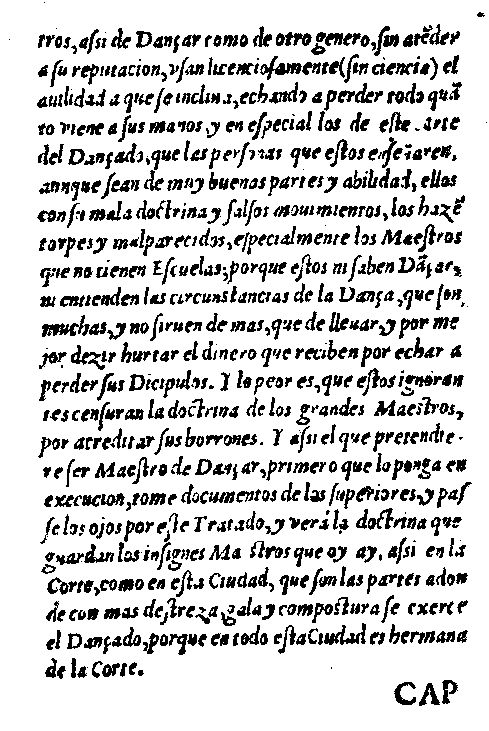 tros, aſsi de Dançar como de otro genero, ſin atẽder
a ſu reputacion, vſan licencioſamente (ſin ciencia) el
auilidad a que ſe inclina, echando a perder todo quã
to viene a ſus manos, y en eſpecial los de eſte arte
del Dançado, que las perſonas que eſtos enſeñaren,
aunque ſean de muy buenas partes y abilidad, ellos
con ſu mala doctrina y falſos mouimientos, los hazẽ
torpes y malparecidos, eſpecialmente los Maeſtros
que no tienen Eſcuelas; porque eſtos ni ſaben Dãçar,
ni entienden las circunſtancias de la Dança, que ſon
muchas, y no ſiruen de mas, que de lleuar, y por me
jor dezir hurtar el dinero que reciben por echar a
perder ſus Dicipulos. Y lo peor es, que eſtos ignoran
tes cenſuran la doctrina de los grandes Maeſtros,
por acreditar ſus borrones. Y aſsi el que pretendie-
re ſer Maeſtro de Dançar, primero que lo ponga en
execucion, tome documentos de los ſuperiores, y paſ
ſe los ojos por eſte Tratado, y verá la doctrina que
guardan los inſignes Maſtros que oy ay, aſsi en la
Corte, como en eſta Ciudad, que ſon las partes adon
de con mas deſtreza, gala y compoſtura ſe exerce
el Dançado, porque en todo eſta Ciudad es hermana
de la Corte.
CAP